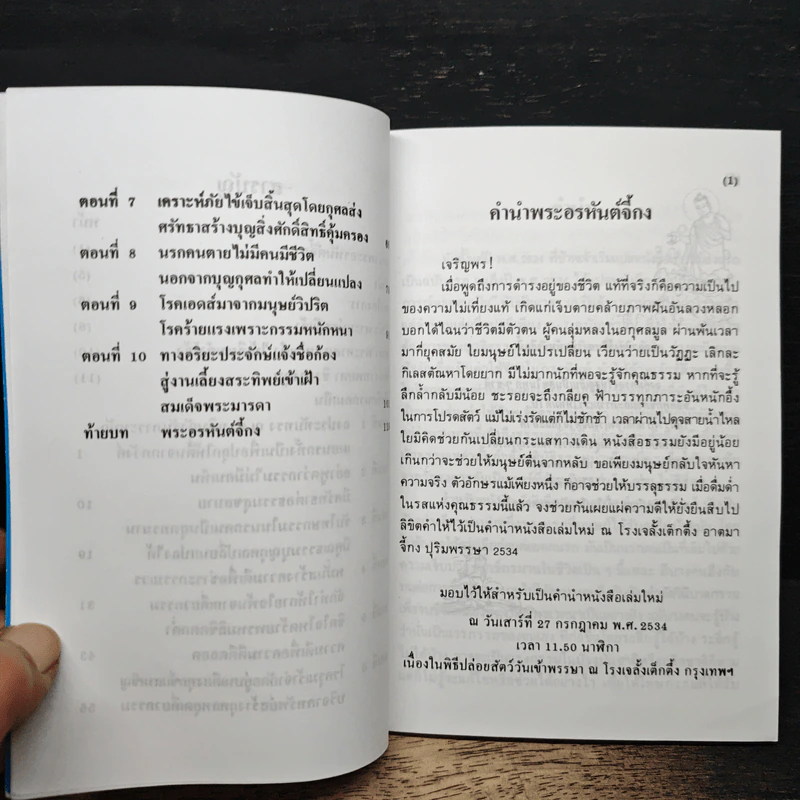 ตอนที่ 7 เคราะห์ภัยไข้เจ็บสิ้นสุดโดยกุศลส่ง
ศรัทธาสร้างบุญสิ่งศักดิ์สิทธิ์คุ้มครอง
ตอนที่ 8 นรกคนตายไม่มีคนมีชีวิต
นอกจากบุญกุศลทำให้เปลี่ยนแปลง
ตอนที่ 9 โรคเอดส์มาจากมนุษย์วิปริต
โรคร้ายแรงเพราะกรรมหนักหนา
ตอนที่ 10 ทางอริยะประจักษ์แจ้งชื่อก้อง
สู่งานเลี้ยงสระทิพย์เข้าเฝ้า
สมเด็จพระมารดา
ท้ายบท พระอรหันต์จี้กง
(1)
คำนำพระอรหันต์จี้กง
เจริญพร!
เมื่อพูดถึงการดำรงอยู่ของชีวิต แท้ที่จริงก็คือความเป็นไป
ของความไม่เที่ยงแท้ เกิดแก่เจ็บตายคล้ายภาพฝันอันลวงหลอก
บอกได้ไฉนว่าชีวิตมีตัวตน ผู้คนลุ่มหลงในอกุศลมูล ผ่านพันเวลา
มากี่ยุคสมัย ไยมนุษย์ไม่แปรเปลี่ยน เวียนว่ายเป็นวัฏฏะ เลิกละ
กิเลสตัณหาโดยยาก มีไม่มากนักที่พอจะรู้จักคุณธรรม หากที่จะรู้
ลึกล้ำกลับมีน้อย ชะรอยจะถึงกลียุค ฟ้าบรรทุกภาระอันหนักอึ้ง
ในการโปรดสัตว์ แม้ไม่เร่งรัดแต่ก็ไม่ชักช้า เวลาผ่านไปดุจสายน้ำไหล
ใยมีคิดช่วยกันเปลี่ยนกระแสทางเดิน หนังสือธรรมยังมีอยู่น้อย
เกินกว่าจะช่วยให้มนุษย์ตื่นจากหลับ ขอเพียงมนุษย์กลับใจค้นหา
ความจริง ตัวอักษรแม้เพียงหนึ่ง ก็อาจช่วยให้บรรลุธรรม เมื่อดื่มด่ำ
ในรสแห่งคุณธรรมนี้แล้ว จงช่วยกันเผยแผ่ความดีให้ยั่งยืนสืบไป
ลิขิตคำให้ไว้เป็นคำนำหนังสือเล่มใหม่ ณ โรงเจลั้งเต็กตึ้ง อาตมา
จี้กง ปุริมพรรษา 2534
มอบไว้ให้สำหรับเป็นคำนำหนังสือเล่มใหม่
ณ วันเสาร์ที่ 27 กรกฎาคม พ.ศ. 2534
เวลา 11.50 นาฬิกา
เนื่องในพิธีปล่อยสัตว์วันเข้าพรรษา ณ โรงเจลั้งเต็กตึ้ง กรุงเทพฯ